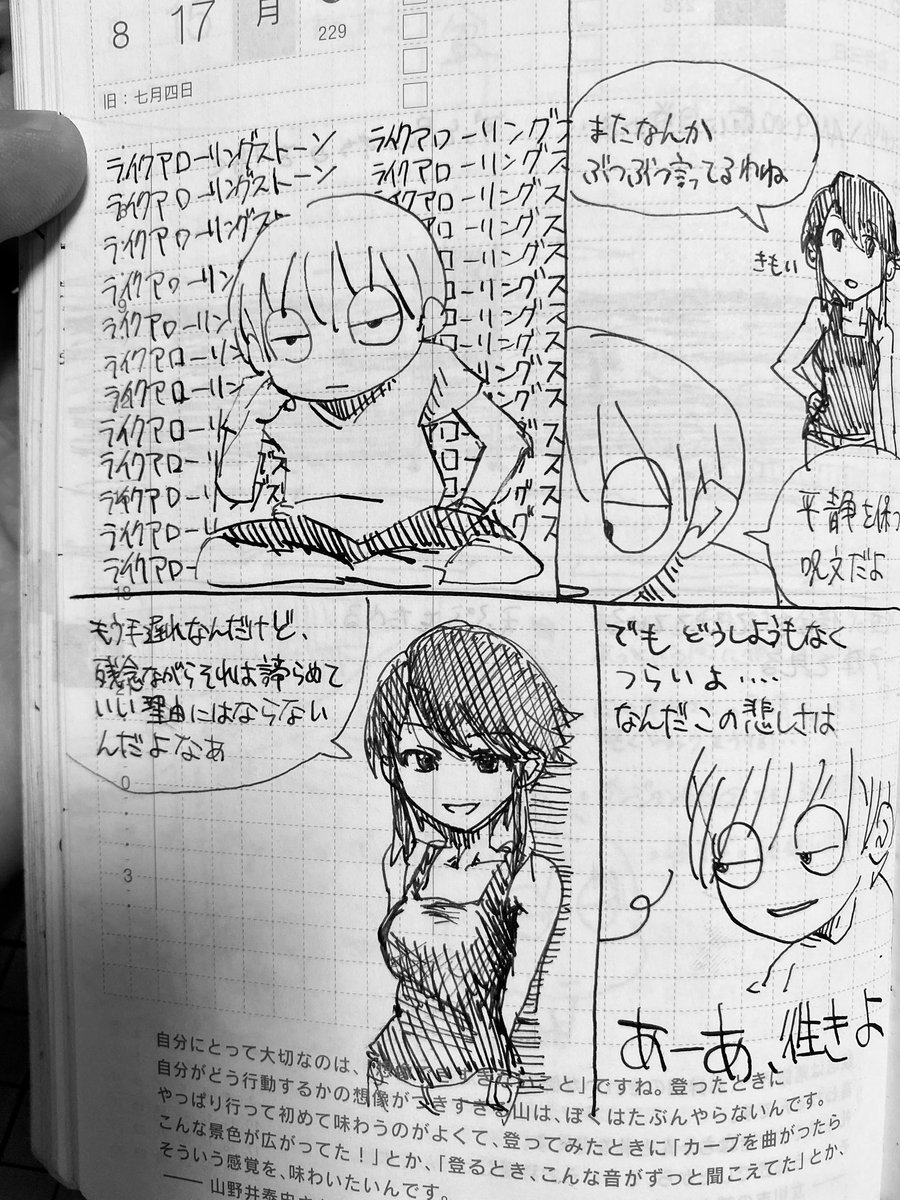 8 17 月
229
旧：七月四日
ライクアローリングストーン ライクアローリングス
ライクアローリングストーン ライクアローリングス
ライクアローリングスト ローリングス
ライクアローリン ローリングス
ライクアローリン ローリングス
ライクアローリン ローリングス
ライクアローリン リングス
ライクアローリ ロ グス
ライクアローリ グス ロ グス
ライクアローリ グス ロ ングス
ライクアローリ グス
ライクアロー
またなんか
ぶつぶつ言ってるわね
きもい
平静を保つ
呪文だよ
もう手遅れなんだけど、
残念ながらそれは諦らめて
いい理由にはならない
んだよなぁ
でも どうしようもなく
つらいよ‥‥
なんだこの悲しさは
あーあ、生きよ
0
3
自分にとって大切なのは、
自分がどう行動するかの想像がつきすぎる山は、ぼくはたぶんやらないんです。
こと」ですね。登ったときに
やっぱり行って初めて味わうのがよくて、登ってみたときに「カーブを曲がったら
こんな景色が広がってた！」とか、「登るとき、こんな音がずっと聞こえてた」とか、
そういう感覚を、味わいたいんです。
—— 山野井泰史